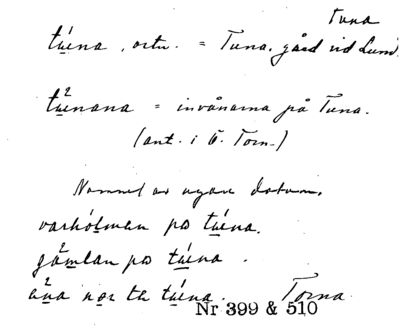 Tuna
túena, ortn. = Tuna, gård vid Lund.
túenana = invånarna på Tuna.
(ant. i Ö. Torn.)
Namnet av ngare datum.
varhólman po túena.
gämlan po túena.
äna nor te túena. Torna
Nr 399 & 510